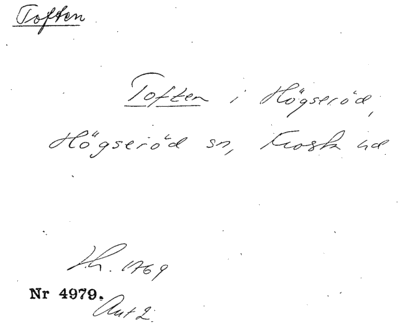 Toften
Toften i Högseröd,
Högseröd sn, Frosta hd
Hr. 1769
Nr 4979.
Akt 2.